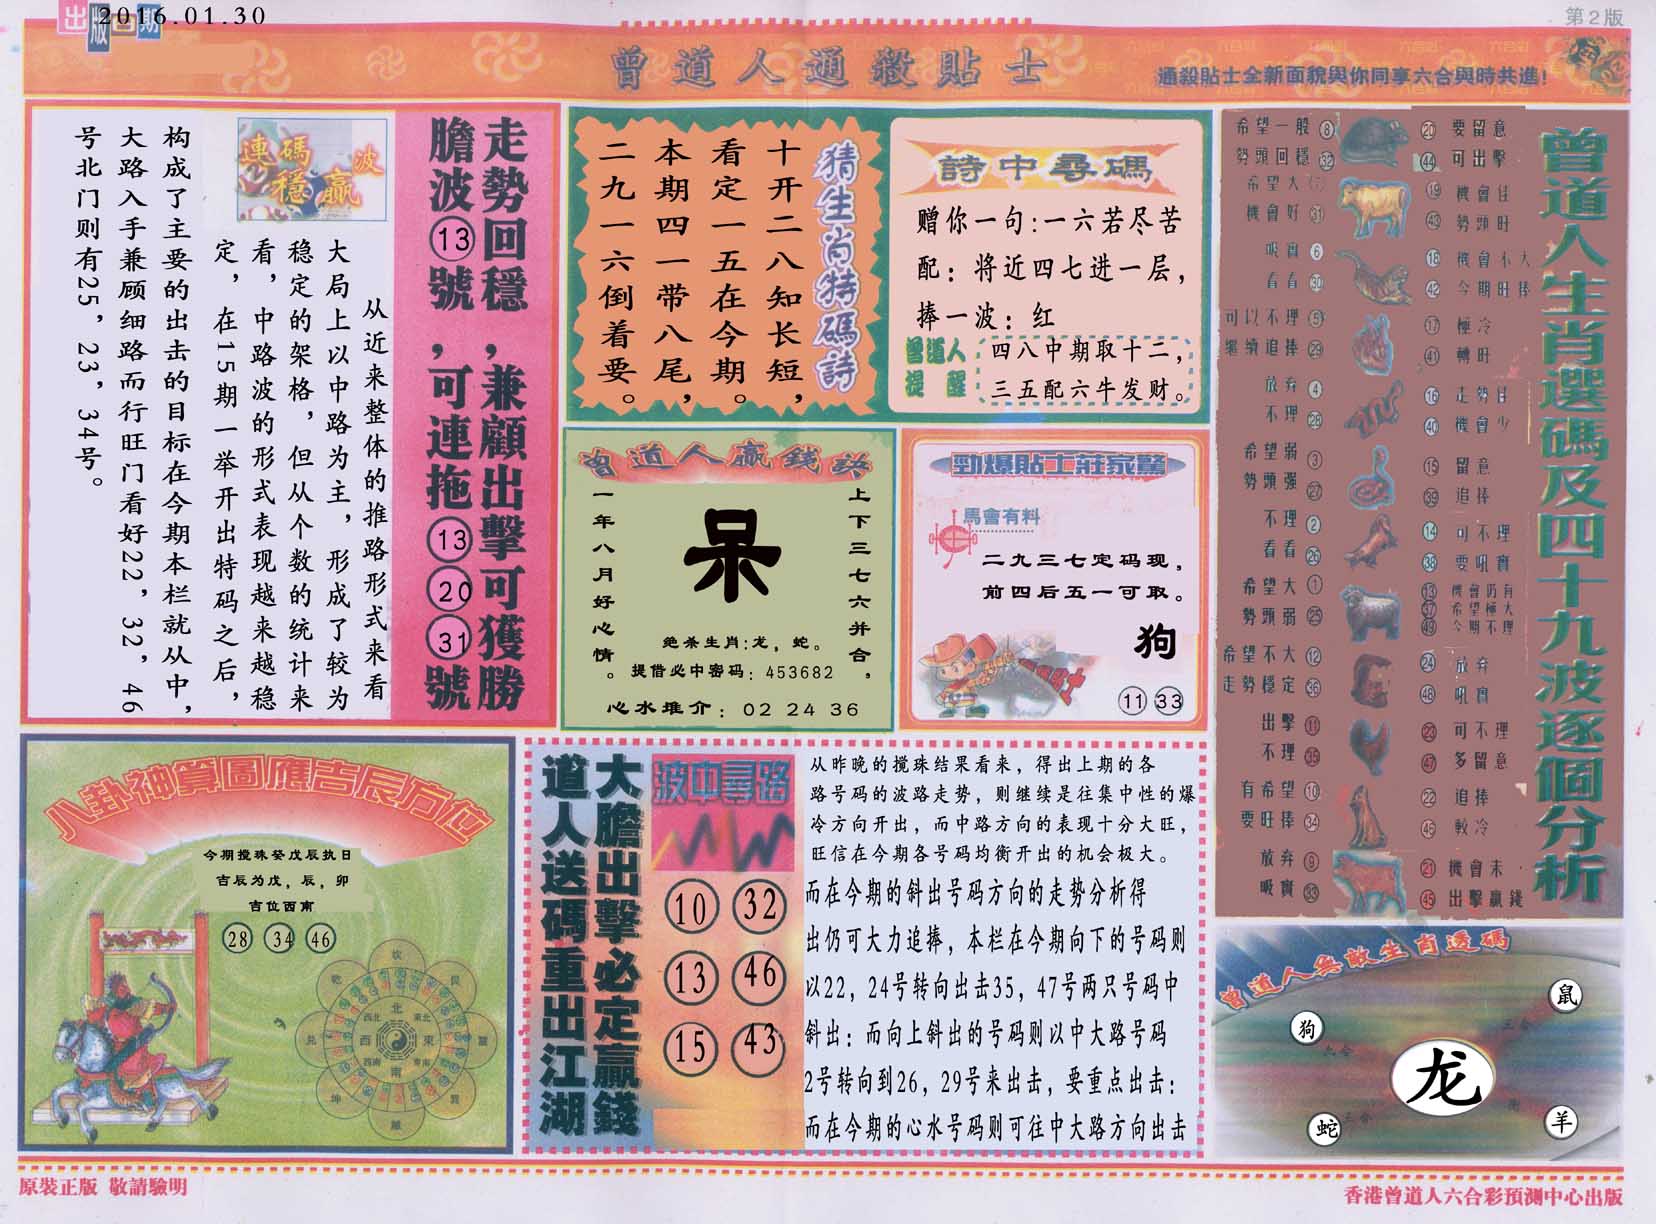 出版日期
2016.01.30
第2版
曾道人通殺貼士
通殺貼士全新面貌與你同享六合與時共進!
走勢回穩,兼顧出擊可獲勝
膽波⑬號,可連拖⑬⑳㉛號
連碼穩贏波
从近来整体的推路形式来看
大局上以中路为主,形成了较为
稳定的架格,但从个数的统计来
看,中路波的形式表现越来越稳
定,在15期一举开出特码之后,
构成了主要的出击的目标在今期本栏就从中,
大路入手兼顾细路而行旺门看好22,32,46
号北门则有25,23,34号。
猜生肖特碼詩
十开二八知长短,
看定一五在今期。
本期四一带八尾,
二九一六倒着要。
詩中尋碼
赠你一句:一六若尽苦
配:将近四七进一层,
捧一波:红
曾道人提醒
四八中期取十二,
三五配六牛发财。
曾道人贏錢訣
上下三七六并合,
一年八月好心情。
呆
绝杀生肖:龙,蛇。
提借必中密码:453682
心水堆介:02 24 36
勁爆貼士莊家驚
馬會有料
二九三七定码现,
前四后五一可取。
狗
11 33
曾道人生肖選碼及四十九波逐個分析
希望一般 8 20 要留意
勢頭回穩 32 44 可出擊
希望大 7 19 機會佳
機會好 31 43 勢頭旺
吸實 6 18 機會不大
看看 30 42 今期旺捧
可以不理 5 17 極冷
繼續追捧 29 41 轉旺
放弃 4 16 走勢佳
不理 28 40 機會少
希望弱 3 15 留意
勢頭强 27 39 追捧
不理 2 14 可不理
看看 26 38 要吼實
希望大 1 13 機會仍有
37 希望極大
勢頭弱 25 49 今期不理
希望不大 12 24 放弃
走勢穩定 36 48 吼實
出擊 11 23 可不理
不理 35 47 多留意
有希望 10 22 追捧
要旺捧 34 46 較冷
放弃 9 21 機會未
吸實 33 45 出擊贏錢
八卦神算圖應吉辰方位
今期搅珠癸戊辰执日
吉辰为戊,辰,卯
吉位西南
28 34 46
坎
艮
震
巽
離
坤
兑
乾
北
東北
東
東南
南
西南
西
西北
大膽出擊必定贏錢
道人送碼重出江湖
波中尋路
10 32
13 46
15 43
从昨晚的搅珠结果看来,得出上期的各
路号码的波路走势,则继续是往集中性的爆
冷方向开出,而中路方向的表现十分大旺,
旺信在今期各号码均衡开出的机会极大。
而在今期的斜出号码方向的走势分析得
出仍可大力追捧,本栏在今期向下的号码则
以22,24号转向出击35,47号两只号码中
斜出:而向上斜出的号码则以中大路号码
2号转向到26,29号来出击,要重点出击:
而在今期的心水号码则可往中大路方向出击
曾道人無敵生肖透碼
鼠
狗
三合
六合
龙
三合
蛇
羊
原裝正版 敬請驗明
香港曾道人六合彩預測中心出版